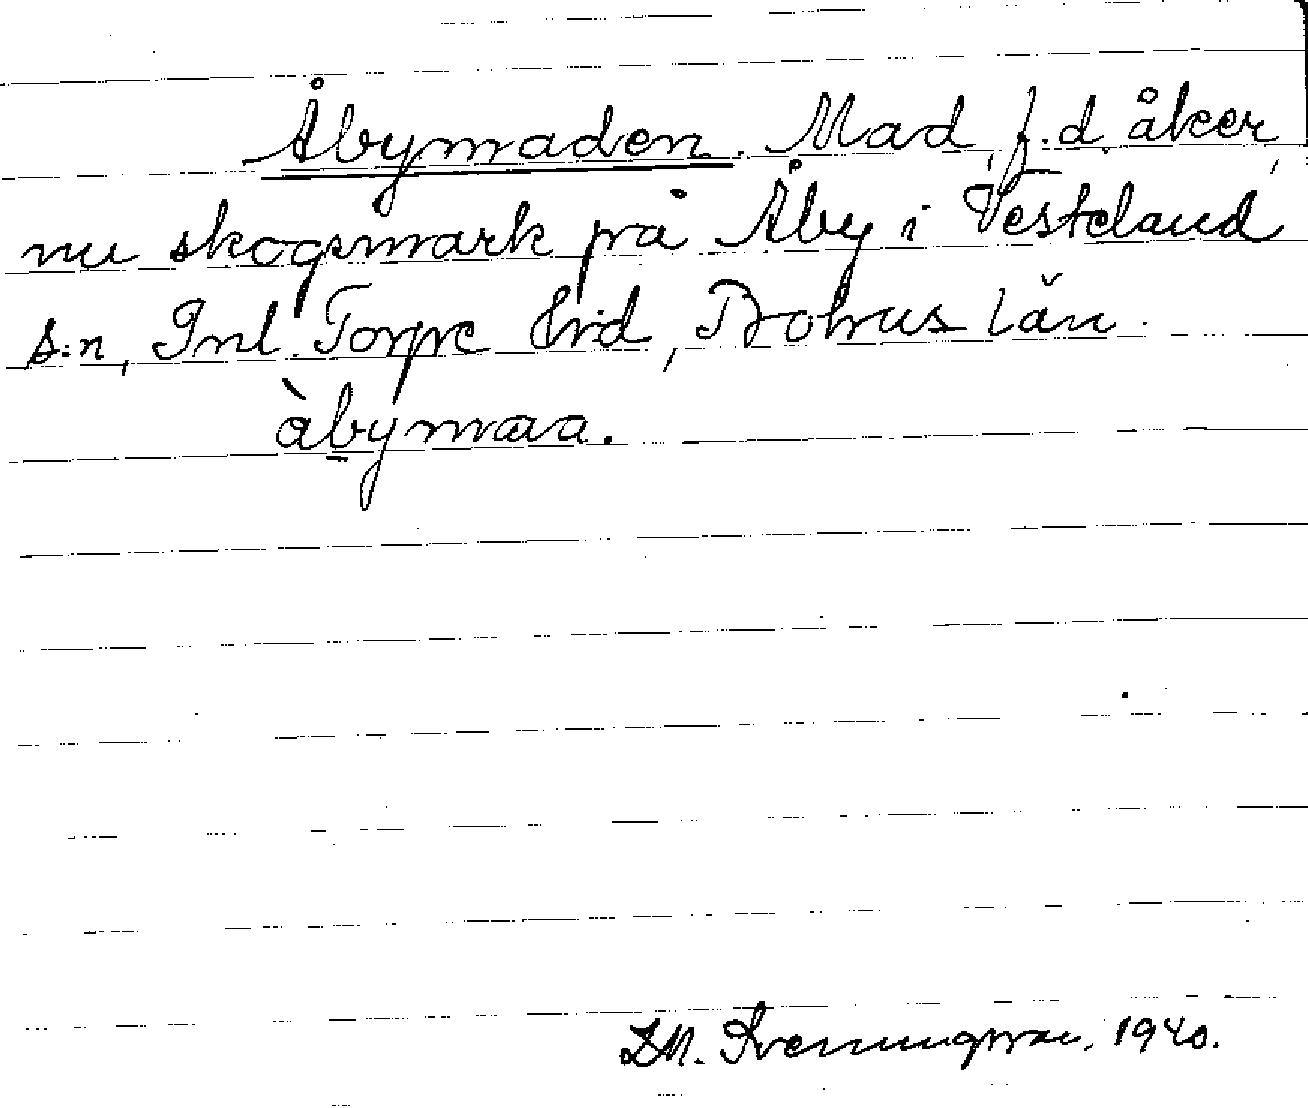 Åbymaden. Mad, f.d. åker,
nu skogsmark på Åby i Vesteland
s:n, Inl. Torpe Hrd, Bohus län.
àbymaa.
Svenningsson, 1940.